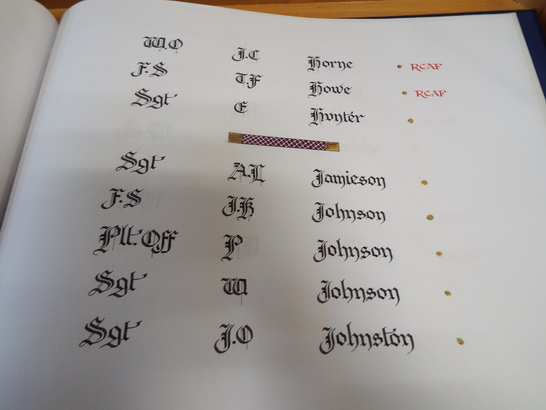 W.O J.C Horne RCAF
F.S T.F Howe RCAF
Sgt E Hunter
Sgt A.L Jamieson
F.S J.H Johnson
Plt.Off P Johnson
Sgt W Johnson
Sgt J.O Johnston